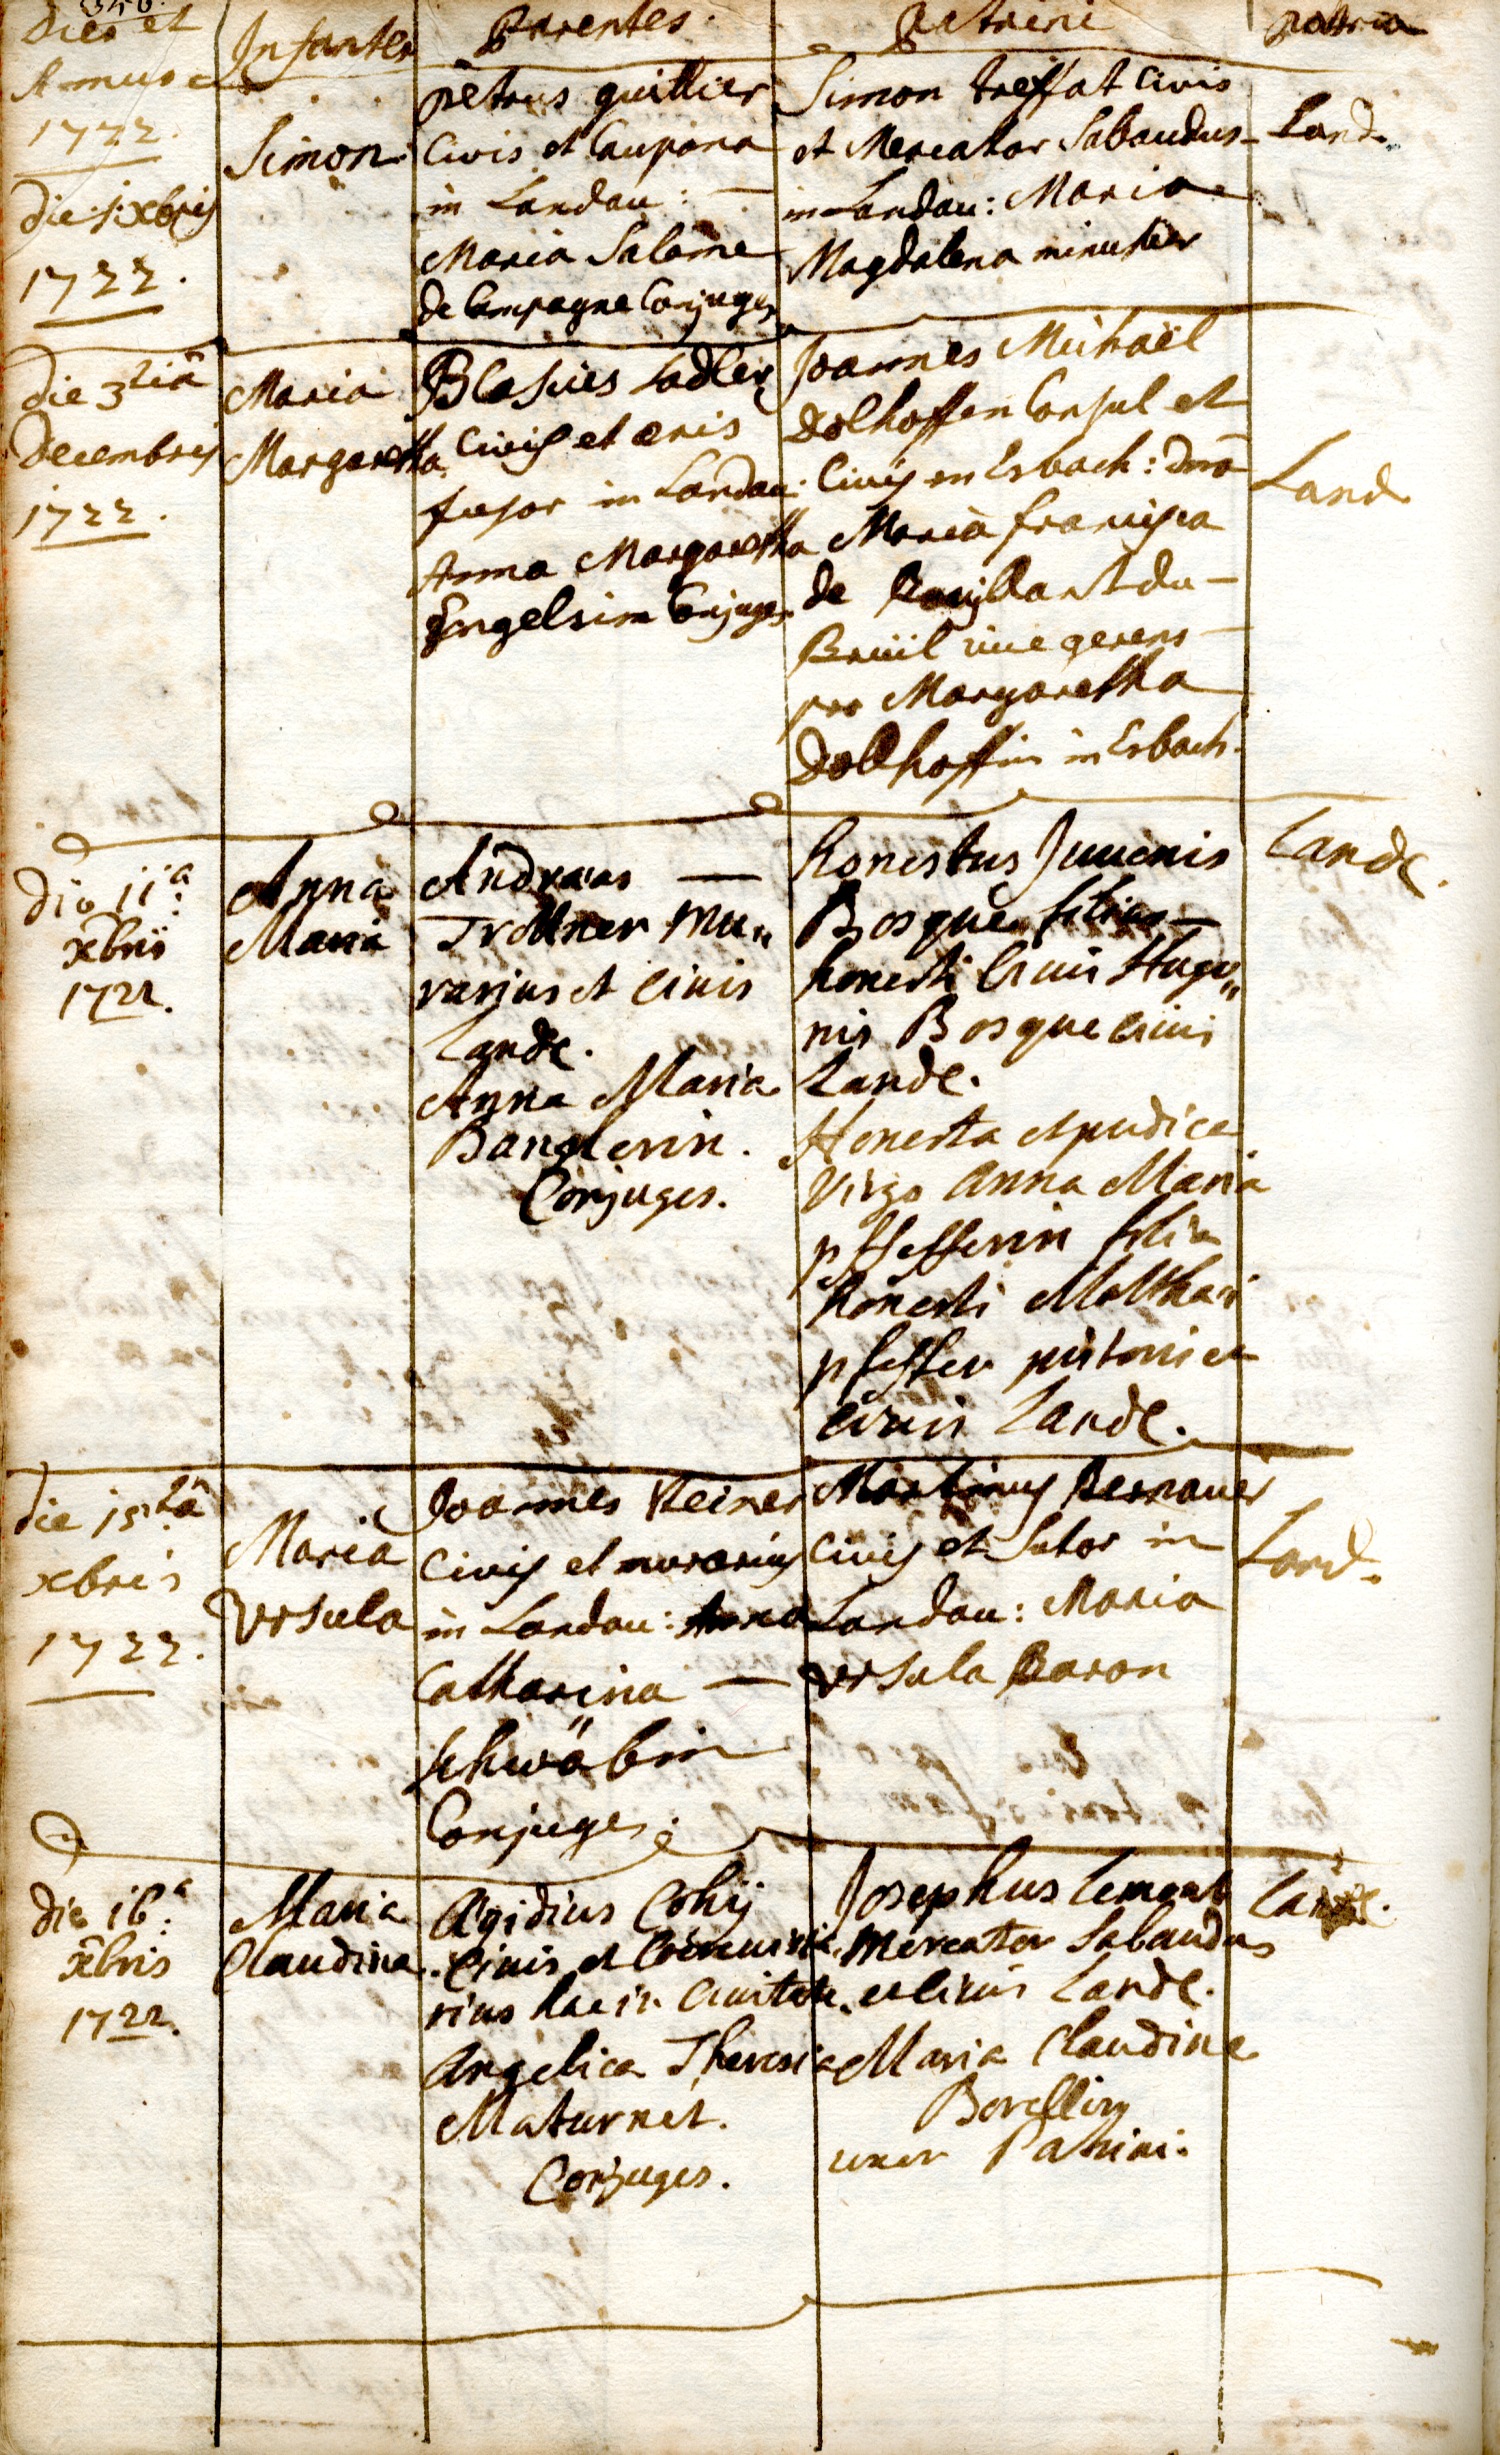 Dies et
Annus
1722.
Infantes
Parentes.
Patrini
patria
die 1. xbris
1722.
Simon
petrus quillier
Civis et Caupona
in Landau:
Maria Salome
de Campagne Conjuges
Simon treffat Civis
et Mercator Sabaudus
in Landau: Maria
Magdalena
Land.
die 3tiâ
Decembris
1722.
Maria
Margaretha
Blasius Sadler
Civis et aeris
fusor in Landau.
Anna Margaretha
Engelsin Conjuges.
Joannes Michaël
Dolhoffen Consul et
Civis en Erbach: Dnâ
Maria francisca
de du-
Breüil vice gerens
pro Margaretha
Dollhoffin in Erbach.
Land
die 11.a
xbris
1722.
Anna
Maria
Andreas —
Trollner mu„
rarius et Civis
Landç.
Anna Maria
Banglerin.
Conjuges.
honestus Juvenis
Bosque filius —
honesti Civis Hugo„
nis Bosque civis
Landç.
Honesta et pudica
Virgo Anna Maria
pfefferin filia
honesti Matthaei
pfeffer pistoris et
civis Landç.
Landç.
die 15tâ
xbris
1722.
Maria
Ursula
Joannes Steiner
Civis et murarius
in Landau: Anna
Catharina —
Schwäbin
Conjuges.
Martinus Bernauer
Civis et Sutor in
Landau: Maria
Ursula Baron
Land.
die 16.a
xbris
1722.
Maria
Claudina
Ægidius Cohij
Civis et
rius hac in Civitate.
Angelica Theresia
Maturnet.
Conjuges.
Josephus Lemont
Mercator Sabaudus
et Civis Landç.
Maria Claudine
Borellin
uxor Patrini.
Landç.